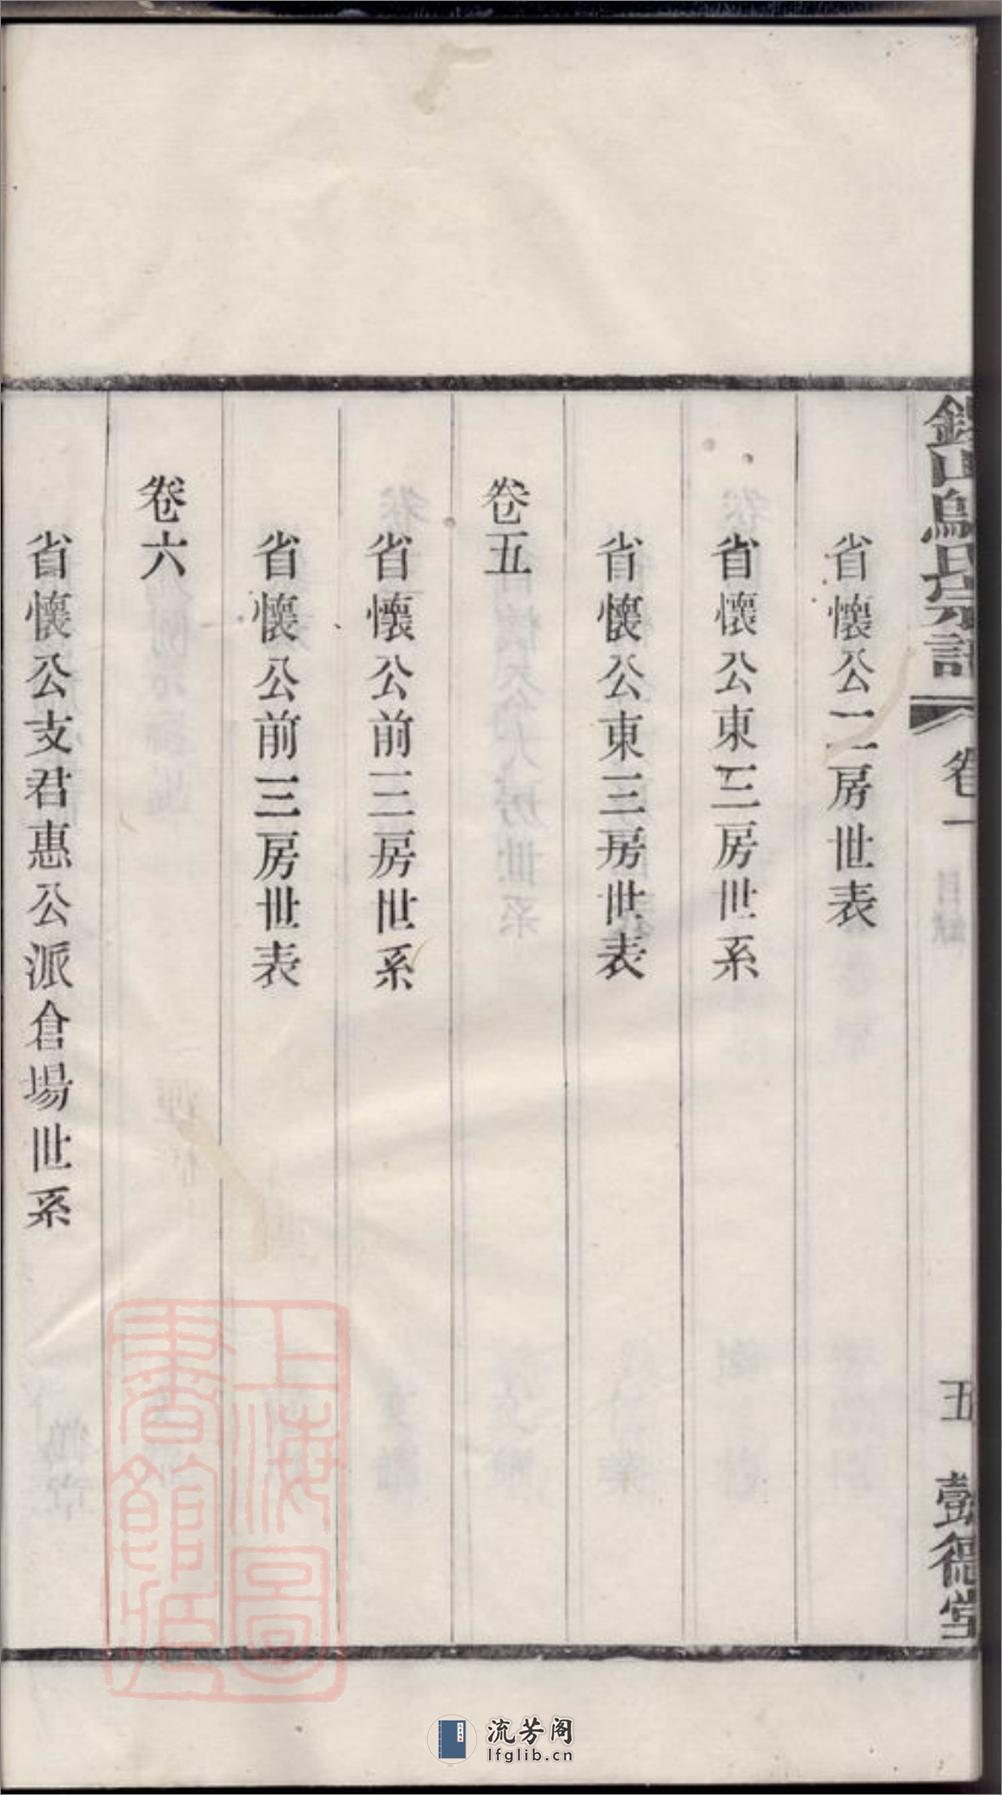 山烏氏宗譜
卷一
五
彝德堂
省懷公二房世表
省懷公東三房世系
省懷公東三房世表
卷五
省懷公前三房世系
省懷公前三房世表
卷六
省懷公支君惠公派倉場世系
上海圖
書館藏
流芳阁
lfglib.cn